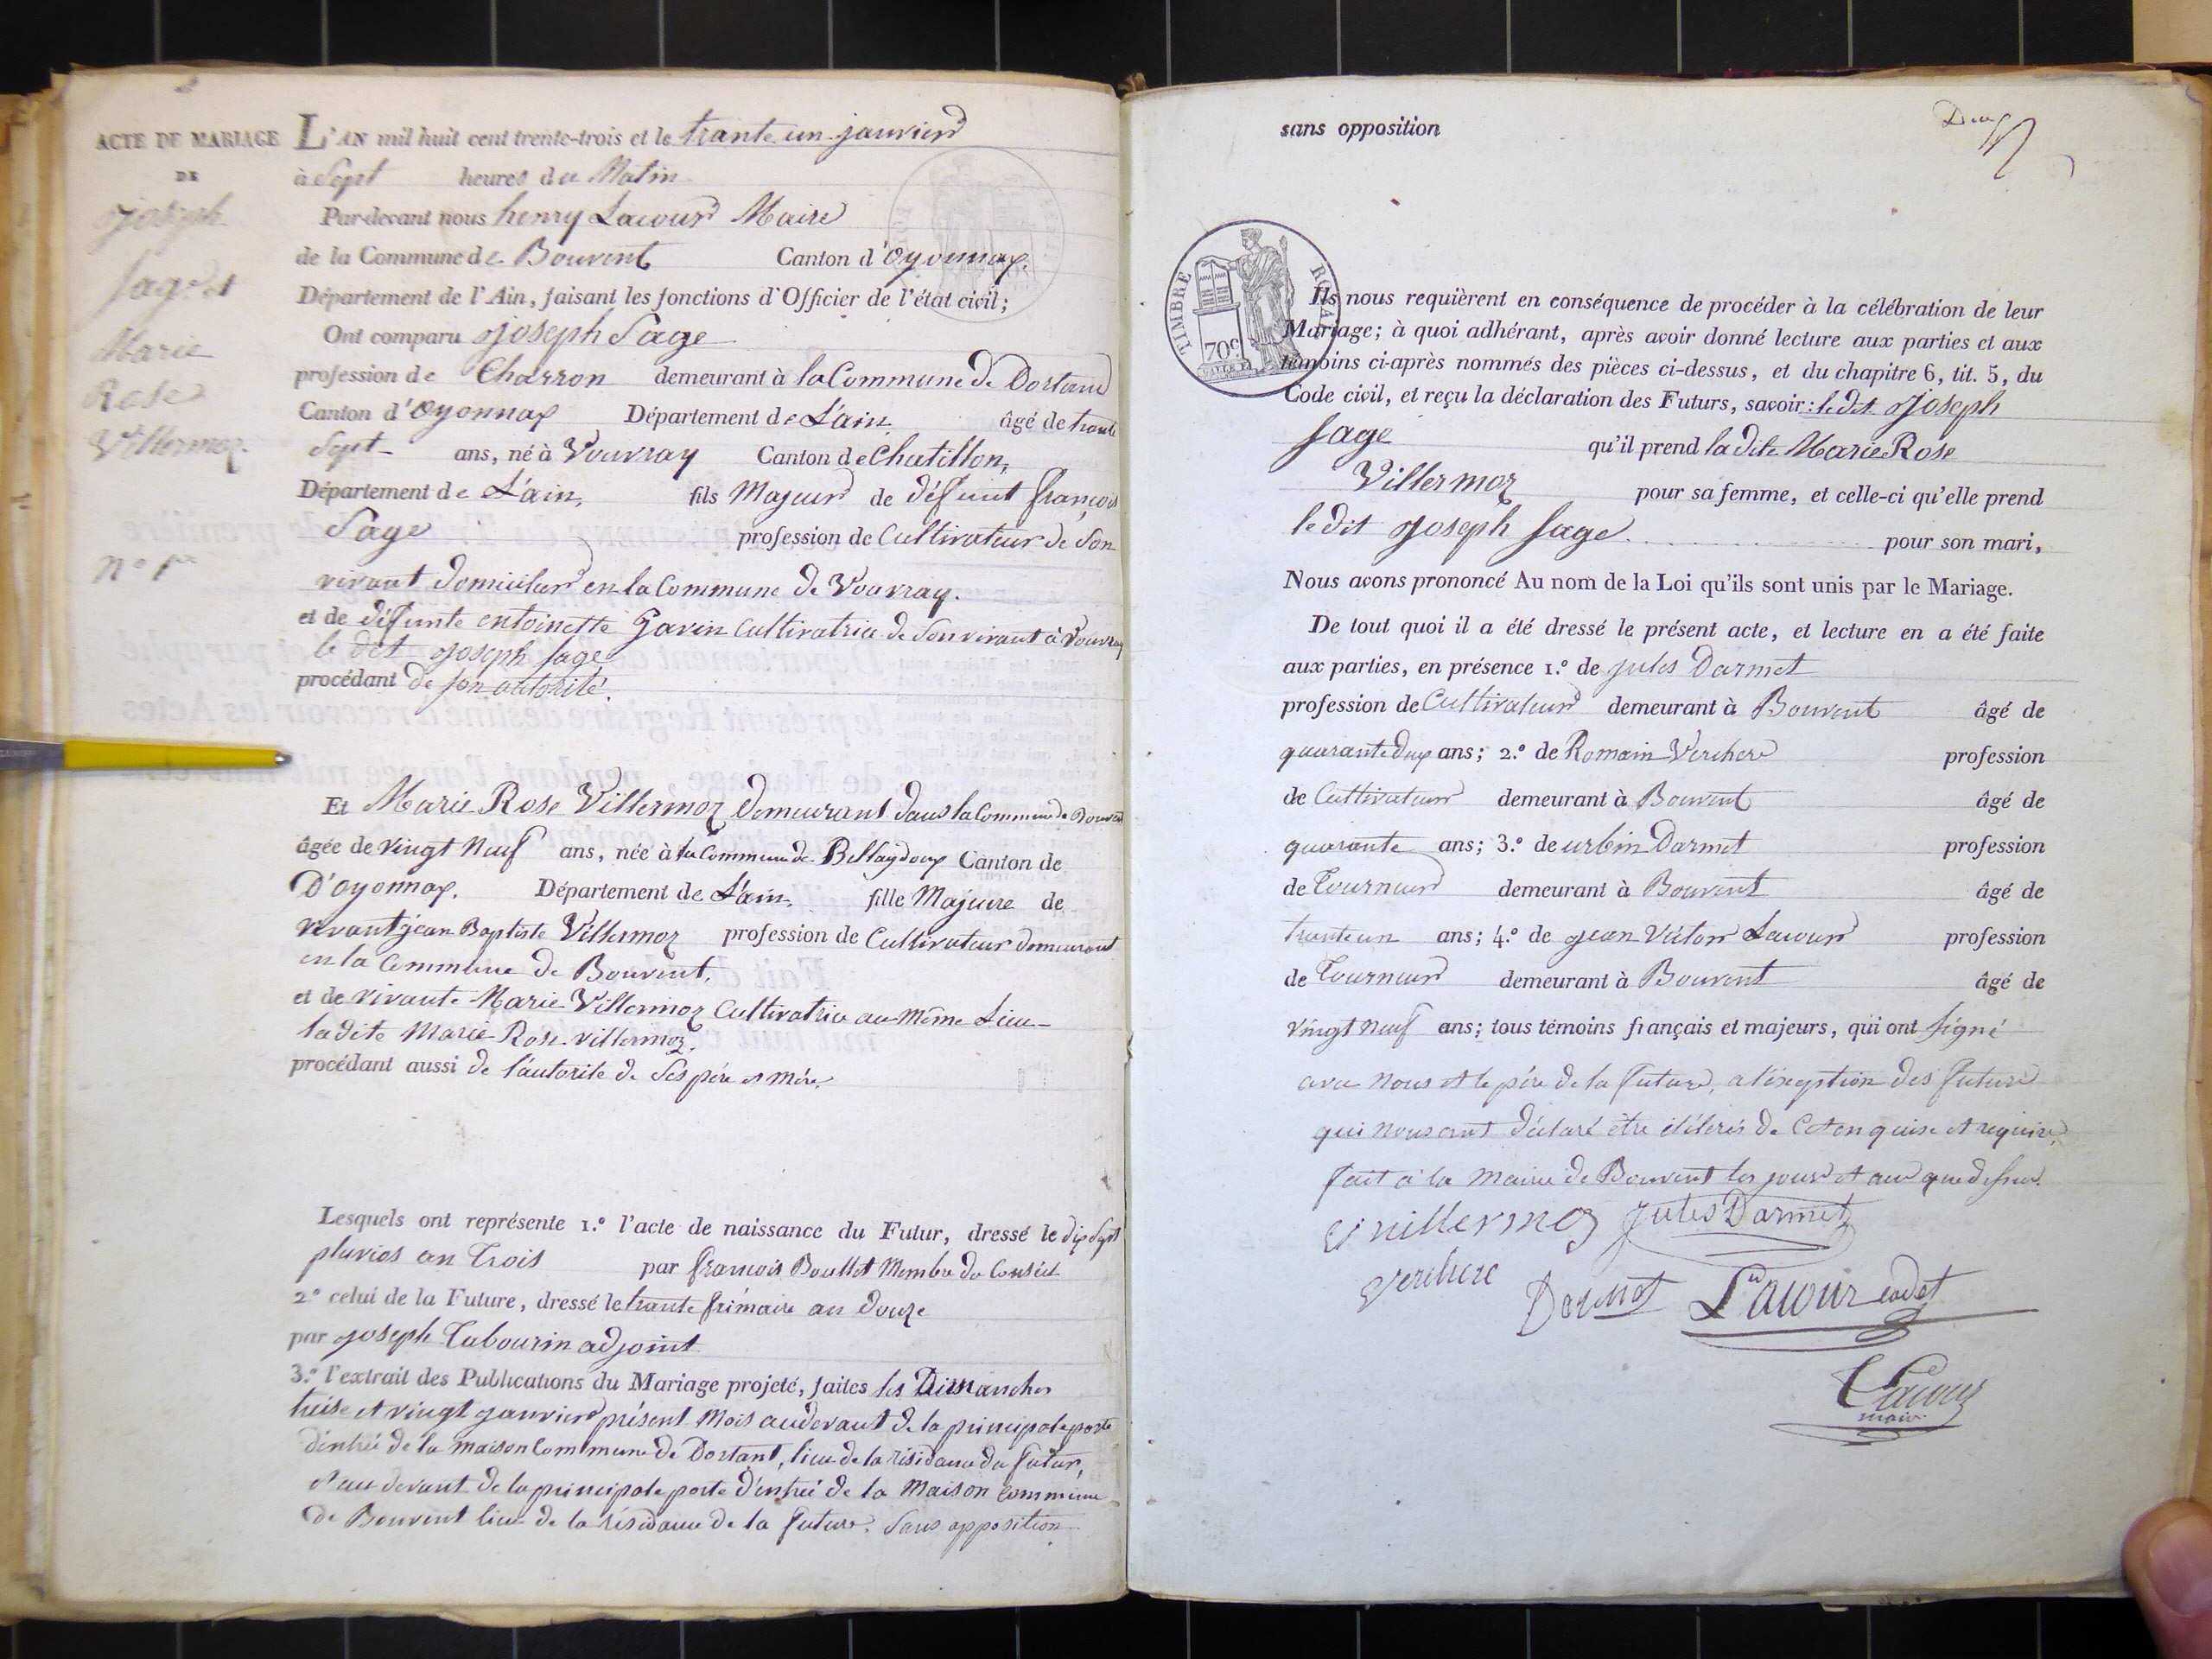 ACTE DE MARIAGE
DE
joseph
Sage et
Marie
Rose
Villermoz.
n° 1er
L'AN mil huit cent trente-trois et le trante un janvier
à Sept heures du Matin
Par-devant nous henry Lacour Maire
de la Commune de Bouvent Canton d'Oyonnax.
Département de l'Ain, faisant les fonctions d'Officier de l'état civil;
Ont comparu joseph Sage
profession de Charron demeurant à la Commune de Dortand
Canton d'Oyonnax Département de L'ain âgé de trante
Sept ans, né à Vouvray Canton de Chatillon,
Département de L'ain, fils Majeur de défunt françois
Sage profession de Cultivateur de Son
vivant domicilier en la Commune de Vouvray.
et de défunte entoinette Gavin Cultivatrice de Son vivant à Vouvray
le dit joseph Sage
procédant de son autorité.
Et Marie Rose Villermoz demeurant dans la Commune de Bouvent
âgée de vingt Neuf ans, née à la Commune de Bellaydoux Canton de
D'oyonnax. Département de L'ain. fille Majeure de
vivant jean Baptiste Villermoz profession de Cultivateur demeurant
en la Commune de Bouvent.
et de vivante Marie Villermoz Cultivatrice au même Lieu
la dite Marie Rose Villermoz.
procédant aussi de l'autorité de Ses père et mère.
Lesquels ont représente 1.° l'acte de naissance du Futur, dressé le dix Sept
pluvios an Trois par françois Boullet Membre du Conseil
2° celui de la Future, dressé le trante frimaire an douze
par joseph Tabourin adjoint
3.° l'extrait des Publications du Mariage projeté, faites les Dimanches
treise et vingt janvier présent Mois audevant de la principale porte
d'entrée de la maison Commune de Dortant, lieu de la résidance du futur,
et au devant de la principale porte d'entrée de la Maison Commune
de Bouvent lieu de la résidance de la future. Sans opposition
sans opposition
TIMBRE ROYAL
70c
Ils nous requièrent en conséquence de procéder à la célébration de leur
Mariage; à quoi adhérant, après avoir donné lecture aux parties et aux
témoins ci-après nommés des pièces ci-dessus, et du chapitre 6, tit. 5, du
Code civil, et reçu la déclaration des Futurs, savoir: le dit joseph
Sage qu'il prend la dite Marie Rose
Villermoz pour sa femme, et celle-ci qu'elle prend
le dit joseph Sage pour son mari,
Nous avons prononcé Au nom de la Loi qu'ils sont unis par le Mariage.
De tout quoi il a été dressé le présent acte, et lecture en a été faite
aux parties, en présence 1.° de jules Darmet
profession de Cultivateur demeurant à Bouvent âgé de
quarante dux ans; 2.° de Romain Verchere profession
de Cultivateur demeurant à Bouvent âgé de
quarante ans; 3.° de urbin Darmet profession
de Tourneur demeurant à Bouvent âgé de
trante un ans; 4.° de jean Victor Lacour profession
de Tourneur demeurant à Bouvent âgé de
vingt Neuf ans; tous témoins français et majeurs, qui ont signé
avec nous et le père de la future, a l'exeption des futurs
qui nous ont déclaré être iliterés de Ce enquise et requise.
fait à la Mairie de Bouvent les jour et an que dessus.
villermoz Jules Darmet
Verchere Darmet Lacour cadet
Lacour
maire